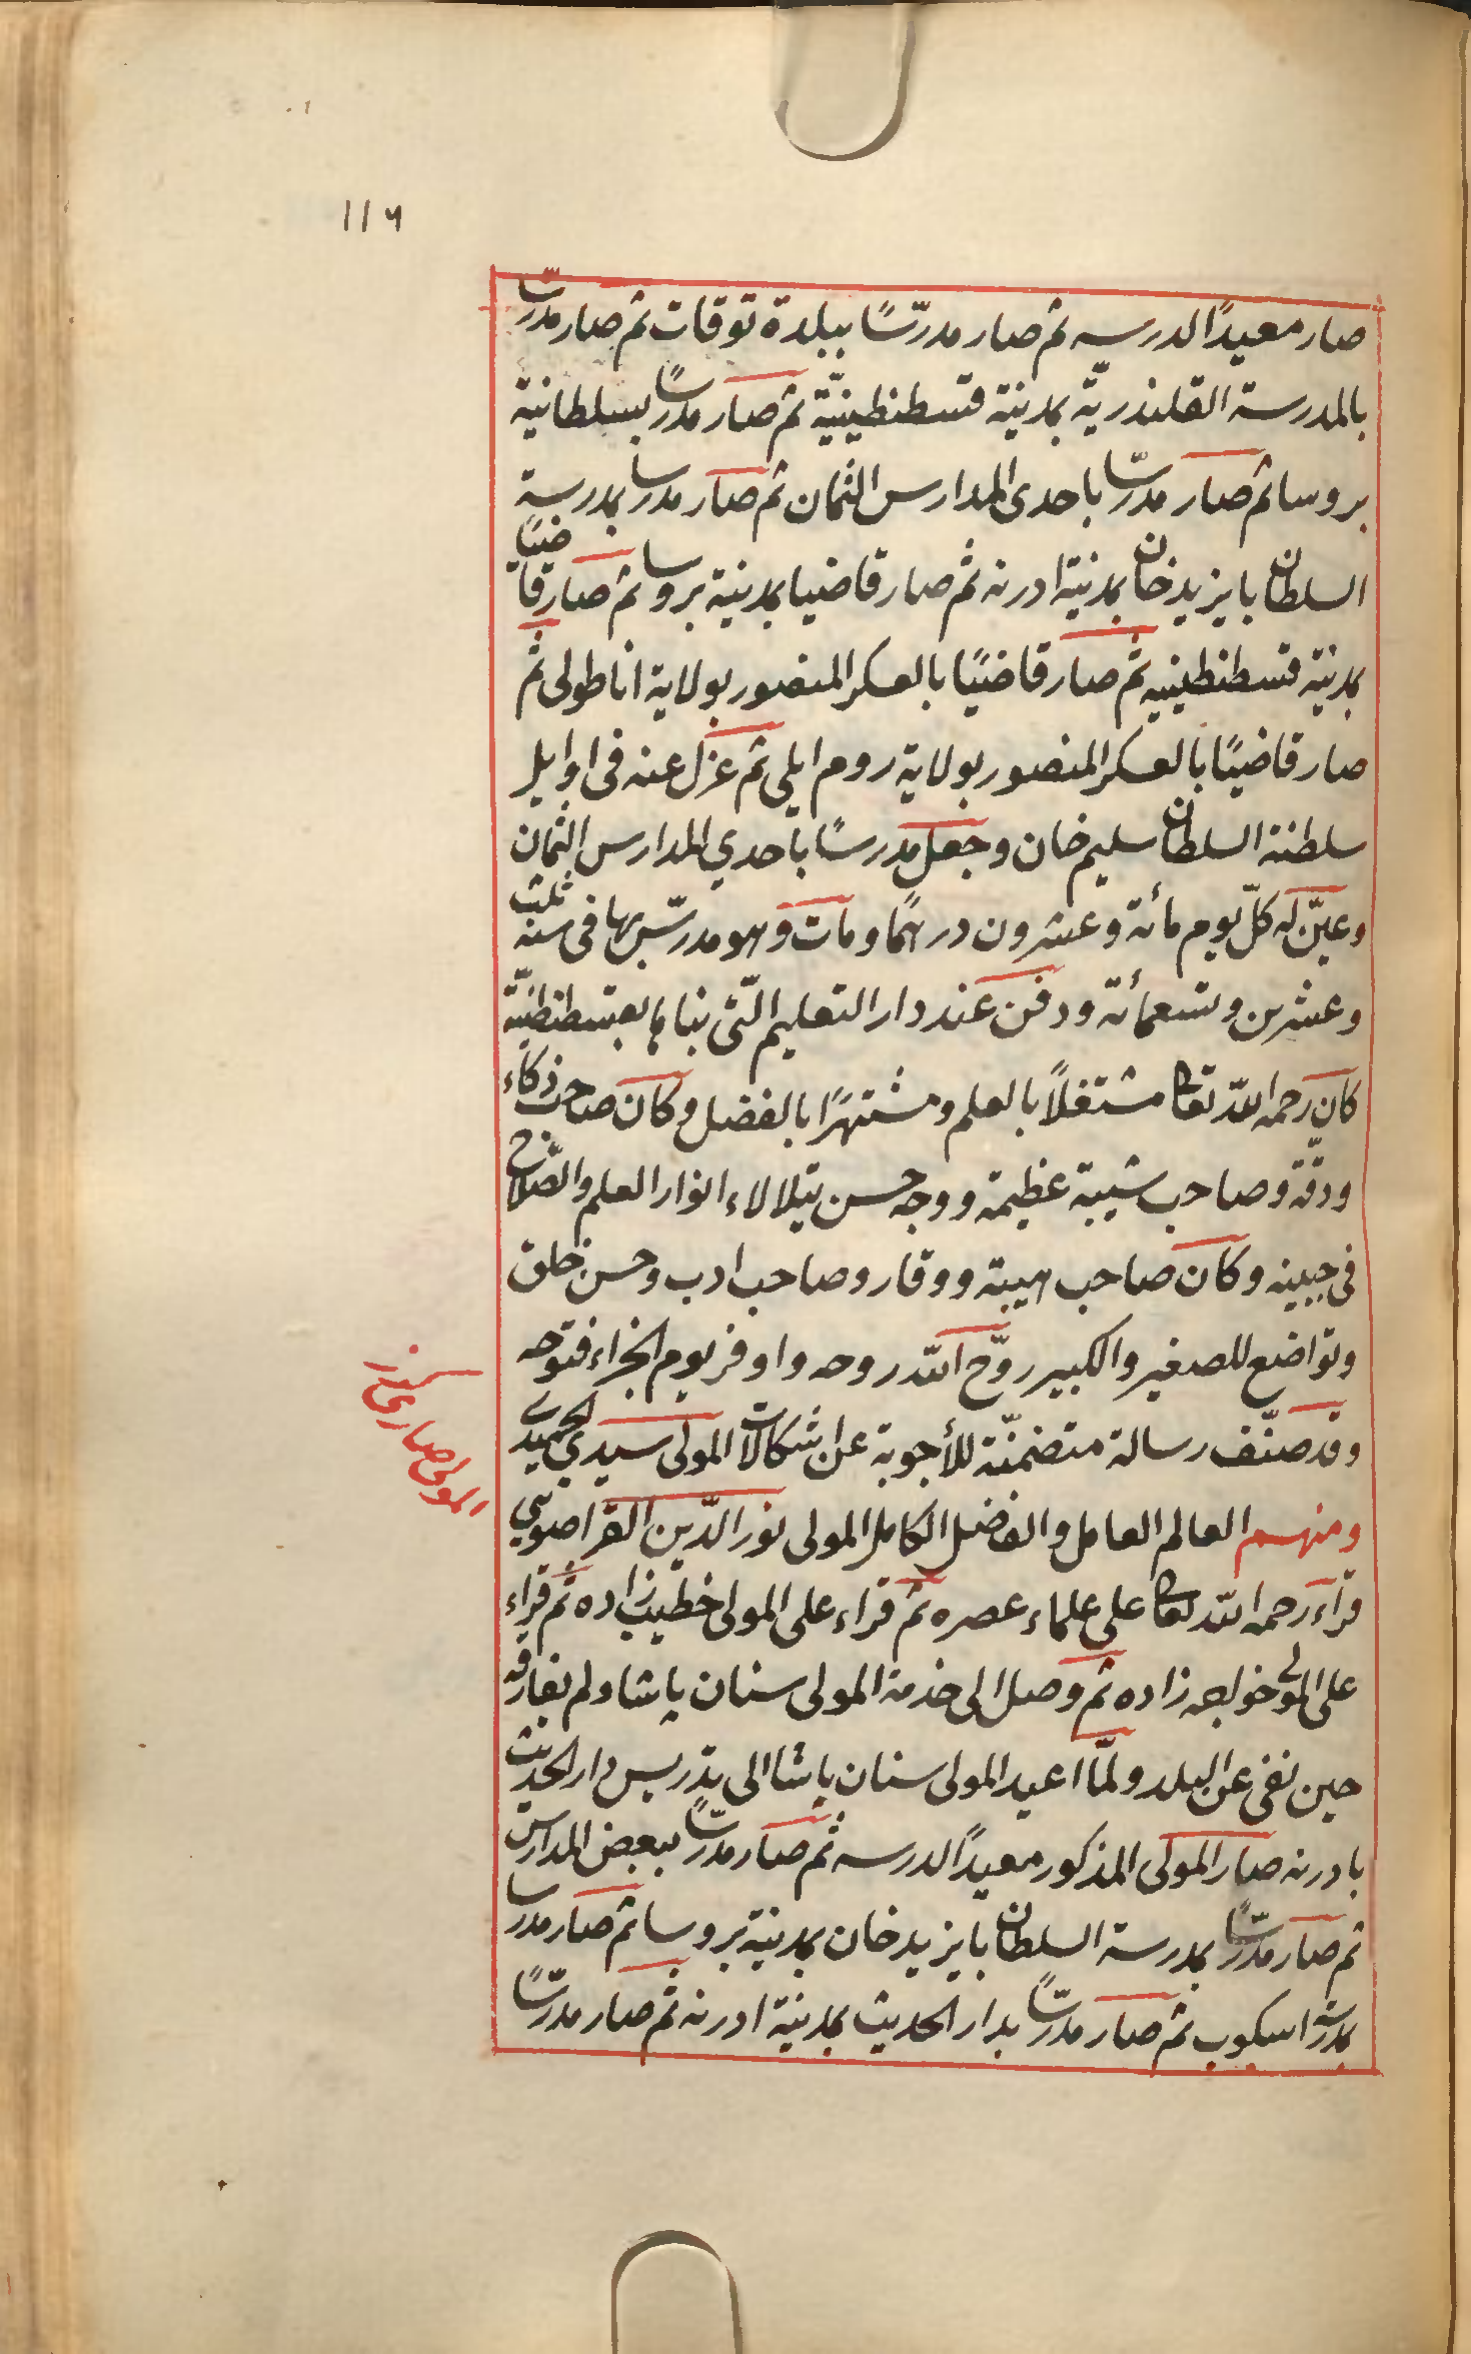 ١١٦
صار معيدًا لدرسه ثم صار مدرّسًا ببلدة توقات ثم صار مدرّسًا
بالمدرسة القلندريّة بمدينة قسطنطينيّة ثم صار مدرسًا بسلطانية
بروسا ثم صار مدرّسا باحدى المدارس الثمان ثم صار مدرسا بمدرسة
السلطان بايزيد خان بمدينة ادرنه ثم صار قاضيا بمدينة بروسا ثم صار قاضيًا
بمدينة قسطنطينيه ثم صار قاضيًا بالعسكر المنصور بولاية اناطولى ثم
صار قاضيًا بالعسكر المنصور بولاية روم ايلى ثم عزل عنه فى اوايل
سلطنة السلطان سليم خان وجعل مدرسًا باحدي المدارس الثمان
وعيّن له كلّ يوم مائة وعشرون درهمًا ومات وهو مدرّس بها فى سنه ثلث
وعشرين وتسعمائة ودفن عند دار التعليم الّتى بناها بقسطنطنيّة
كان رحمه اللّه تعالى مشتغلاً بالعلم ومشتهرًا بالفضل وكان صاحب ذكاء
ودقّة وصاحب شيبة عظيمة ووجه حسن يتلالاء انوار العلم والصّلاح
فى جبينه وكان صاحب هيبة ووقار وصاحب ادب وحسن خلق
وتواضع للصغير والكبير روّح اللّه روحه واوفر يوم الجزاء فتوحه
وقد صنّف رسالة متضمنّة للأجوبة عن اشكالات المولى سيدي الحميدى
المولى صارى كرز
ومنهم العالم العامل والفاضل الكامل المولى نور الدّين القراصويى
قراء رحمه اللّه تعالى على علماء عصره ثم قراء على المولى خطيب زاده ثم قراء
على المولى خواجه زاده ثم وصل الى خدمة المولى سنان پاشا ولم يفارقه
حين نفى عن البلد ولمّا اعيد المولى سنان پاشا الى تدريس دار الحديث
بادرنه صار المولى المذكور معيدًا لدرسه ثم صار مدرّسًا ببعض المدارس
ثم صار مدّرسًا بمدرسة السلطان بايزيد خان بمدينة بروسا ثم صار مدرسا
بمدرسة اسكوب ثم صار مدرّسًا بدار الحديث بمدينة ادرنه ثم صار مدرّسًا